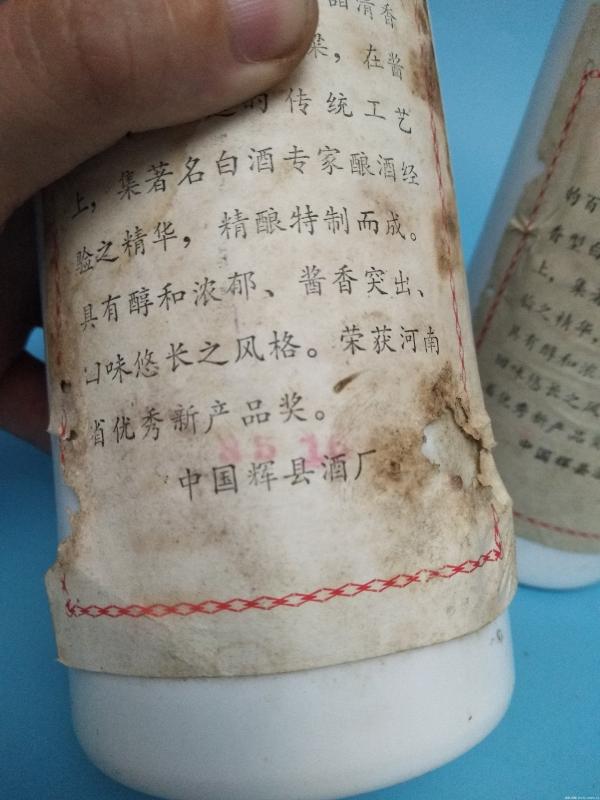 晶清香
粱，在酱
的传统工艺
上，集著名白酒专家酿酒经
验之精华，精酿特制而成。
具有醇和浓郁、酱香突出、
回味悠长之风格。荣获河南
省优秀新产品奖。
85 1
中国辉县酒厂
的百
香型白
上，集著
验之精华，
具有醇和浓
回味悠长之风
省优秀新产品奖
中国辉县